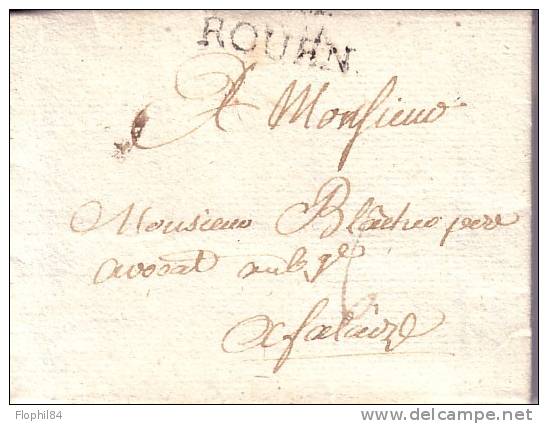 ROUEN
A Monsieur
Monsieur Blachee pere
avocat
a falaize
Flophil84
delcampe.net